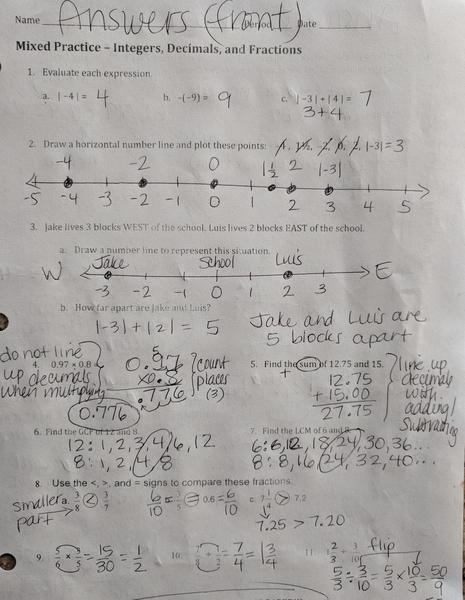 Name Answers (front) Period Date
Mixed Practice – Integers, Decimals, and Fractions
1. Evaluate each expression.
a. |-4| = 4 b. -(-9) = 9 c. |-3| + |4| = 7
3+4
2. Draw a horizontal number line and plot these points: |-3| = 3
-4 -2 0 1 1/2 2 |-3|
-5 -4 -3 -2 -1 0 1 2 3 4 5
3. Jake lives 3 blocks WEST of the school. Luis lives 2 blocks EAST of the school.
a. Draw a number line to represent this situation.
W Jake School Luis E
-3 -2 -1 0 1 2 3
b. How far apart are Jake and Luis?
|-3| + |2| = 5
Jake and Luis are
5 blocks apart
do not line
up decimals
when multiplying
4. 0.97 x 0.8
5
0.97
x0.8
.776
count
places
(3)
0.776
5. Find the sum of 12.75 and 15.
+
12.75
+ 15.00
27.75
line up
decimals
with
adding/
subtracting
6. Find the GCF of 12 and 8.
12: 1, 2, 3, 4, 6, 12
8: 1, 2, 4, 8
7. Find the LCM of 6 and 8.
6: 6, 12, 18, 24, 30, 36...
8: 8, 16, 24, 32, 40...
8. Use the <, >, and = signs to compare these fractions.
smaller part
a. 3/8 < 3/7
6/10 = 3/5 = 0.6 = 6/10
c. 7 1/4 > 7.2
7.25 > 7.20
9. 5/6 x 3/5 = 15/30 = 1/2
10. 7/8 ÷ 1/2 = 7/4 = 1 3/4
11. 1 2/3 ÷ 3/10 flip
5/3 ÷ 3/10 = 5/3 x 10/3 = 50/9